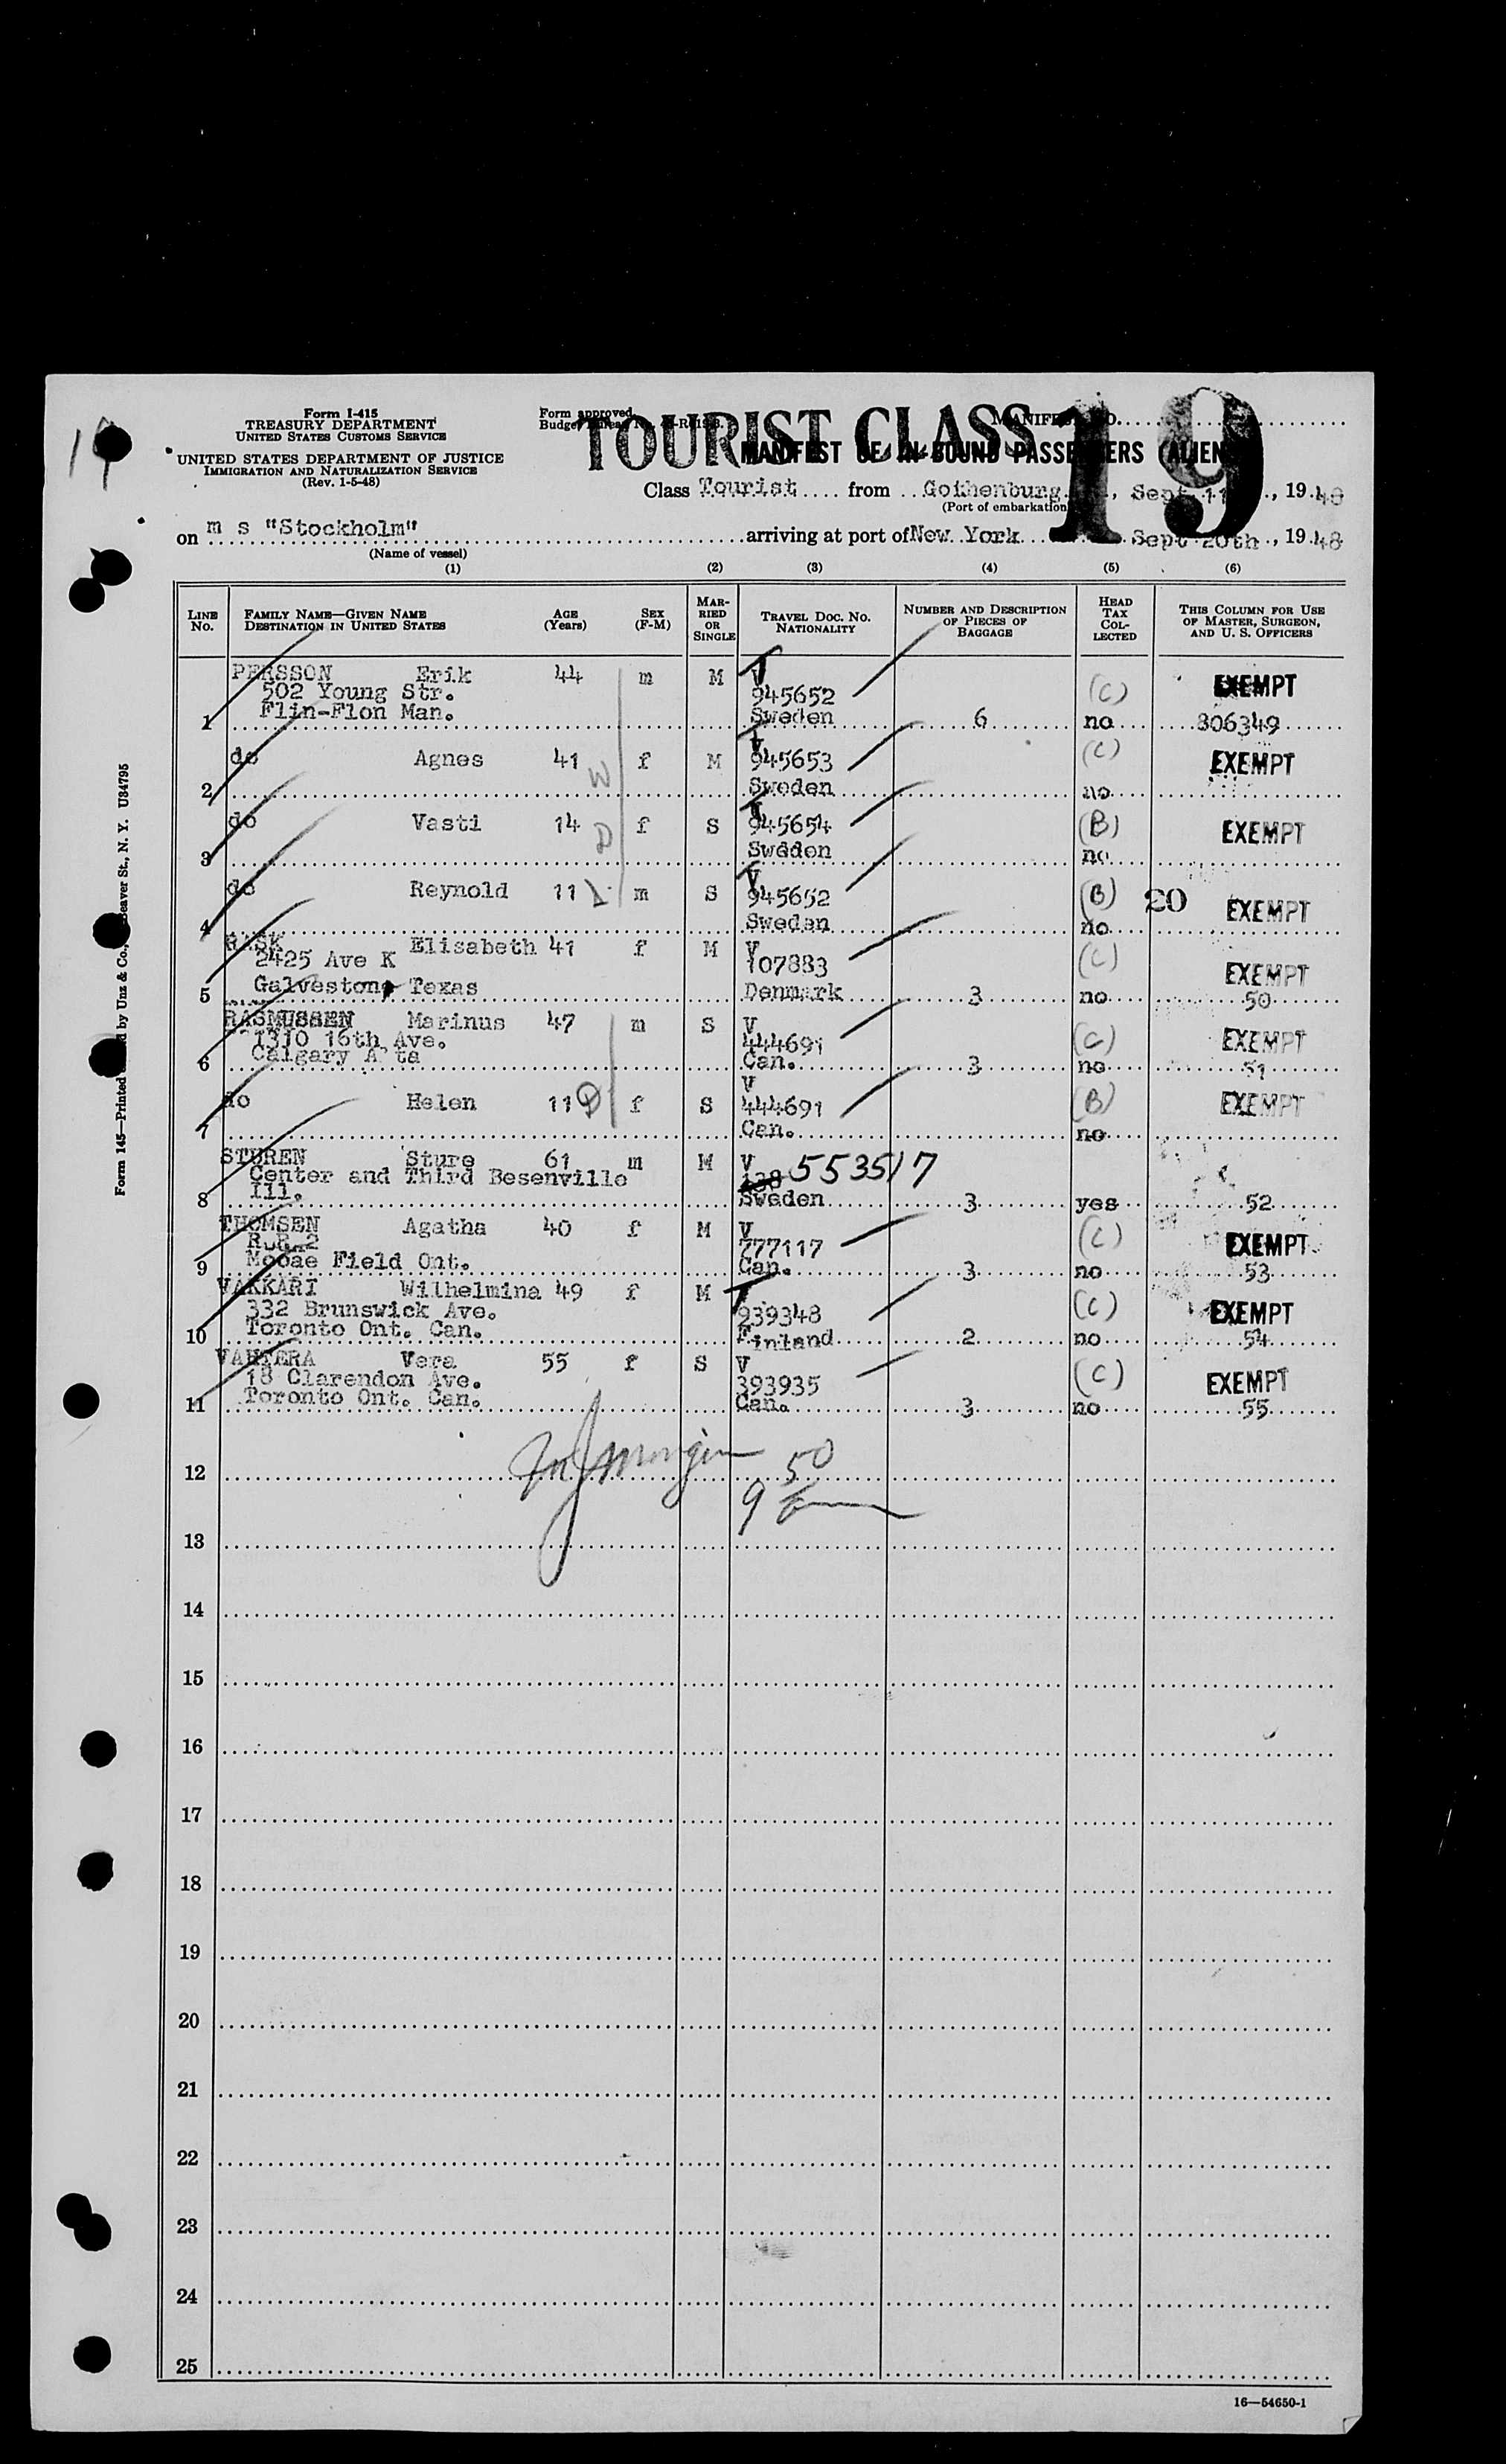 19
Form I-415
TREASURY DEPARTMENT
UNITED STATES CUSTOMS SERVICE
UNITED STATES DEPARTMENT OF JUSTICE
IMMIGRATION AND NATURALIZATION SERVICE
(Rev. 1-5-48)
Form approved.
TOURIST CLASS
19
MANIFEST OF IN-BOUND PASSENGERS (ALIEN
Class Tourist from Gothenburg, Sept 11, 1948
(Port of embarkation)
on m s "Stockholm" arriving at port of New York Sept 20th, 1948
(Name of vessel)
(1) (2) (3) (4) (5) (6)
LINE No. FAMILY NAME—GIVEN NAME DESTINATION IN UNITED STATES AGE (Years) SEX (F-M) MARRIED OR SINGLE TRAVEL DOC. NO. NATIONALITY NUMBER AND DESCRIPTION OF PIECES OF BAGGAGE HEAD TAX COLLECTED THIS COLUMN FOR USE OF MASTER, SURGEON, AND U. S. OFFICERS
PERSSON Erik 44 m M V (C) EXEMPT
502 Young Str. 945652
1 Flin-Flon Man. Sweden 6 no 306349
do Agnes 41 W f M 945653 (C) EXEMPT
2 Sweden no
do Vasti 14 D f S 945654 (B) EXEMPT
3 Sweden no
do Reynold 11 m S V 945652 (B) EXEMPT
4 Sweden no
RASK Elisabeth 41 f M V (C) EXEMPT
2425 Ave K 107883
5 Galveston Texas Denmark 3 no 50
RASMUSSEN Marinus 47 m S V (C) EXEMPT
1310 16th Ave. 444691
6 Calgary A ta Can. 3 no 51
do Helen 11 D f S V 444691 (B) EXEMPT
7 Can. no
STUREN Sture 61 m M V 553517
Center and Third Besenville 138
8 Ill. Sweden 3 yes 52
THOMSEN Agatha 40 f M V (C) EXEMPT
R.R.2 777117
9 Mooae Field Ont. Can. 3 no 53
VAKKARI Wilhelmina 49 f M (C) EXEMPT
332 Brunswick Ave. 939348
10 Toronto Ont. Can. Finland 2 no 54
VAHTERA Vera 55 f S V (C) EXEMPT
18 Clarendon Ave. 393935
11 Toronto Ont. Can. Can. 3 no 55
12
50
9
13
14
15
16
17
18
19
20
21
22
23
24
25
16—54650-1